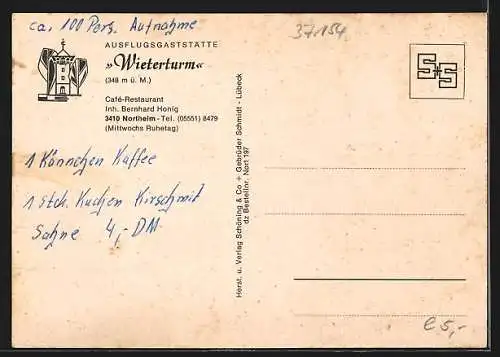 ca. 100 Pers. Aufnahme
37154
AUSFLUGSGASTSTÄTTE
»Wieterturm«
(348 m ü. M.)
Café-Restaurant
Inh. Bernhard Honig
3410 Northeim - Tel. (05551) 8479
(Mittwochs Ruhetag)
S+S
1 Kännchen Kaffee
1 Stck. Kuchen Kirschmit
Sahne 4,- DM
Herst. u. Verlag Schöning & Co + Gebrüder Schmidt - Lübeck
dz Bestellnr. Nort 197
€ 5,-